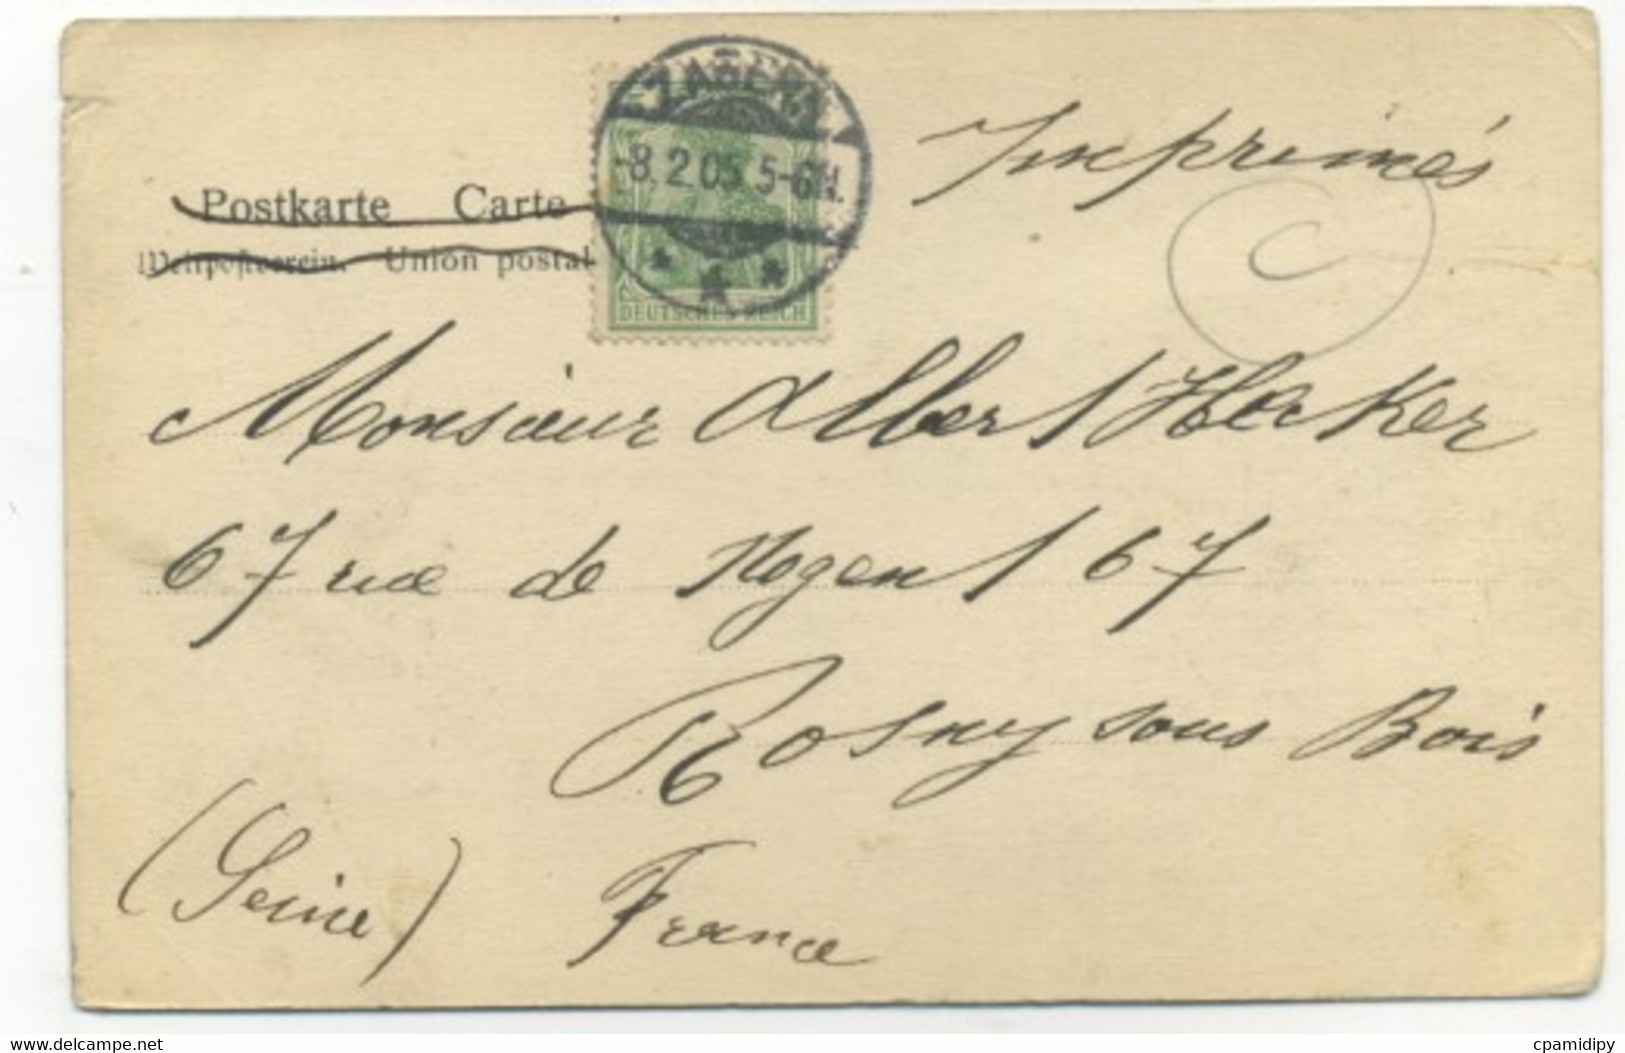 ZABERN
-8.2.05.5-6N.
Imprimés
Postkarte Carte
Weltpostverein. Union postal
DEUTSCHES REICH
Monsieur Albert Hecker
67 rue de Nogent 67
Rosny sous Bois
(Seine) France
www.delcampe.net
cpamidipy